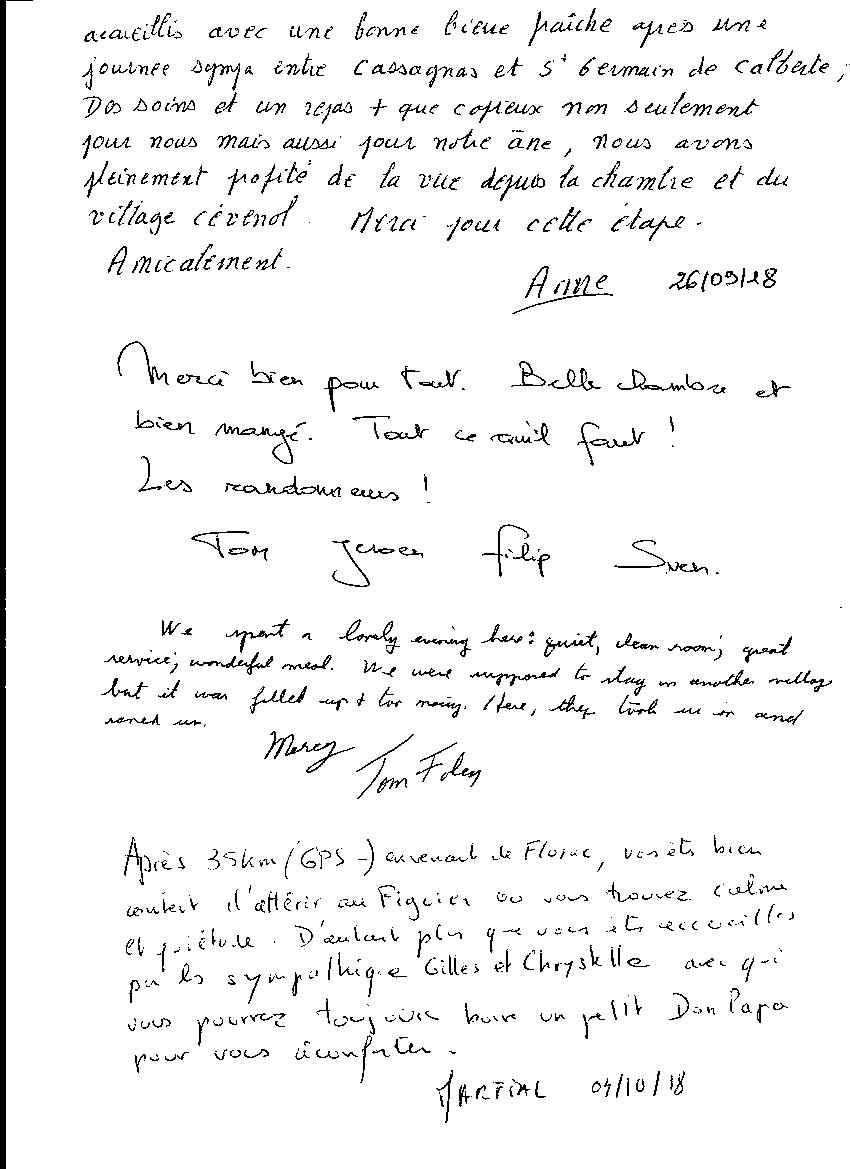 accueillis avec une bonne bière fraîche après une
journée sympa entre Cassagnas et St Germain de Calberte,
Des soins et un repas + que copieux non seulement
pour nous mais aussi pour notre âne, nous avons
pleinement profité de la vue depuis la chambre et du
village cévenol. Merci pour cette étape.
Amicalement.
Anne 26/09/18
Merci bien pour tout. Belle chambre et
bien mangé. Tout ce qu'il faut !
Les randonneurs !
Tom Jeroen Filip Sven.
We spent a lovely evening here: quiet, clean room; great
service; wonderful meal. We were supposed to stay in another village
but it was filled up + too noisy. Here, they took us in and
saved us.
Mercy
Tom Foley
Après 35km (GPS -) en venant de Florac, vous êts bien
content d'attérir au Figuier ou vous trouvez calme
et quiétude. D'autant plus que vous êts accueilles
par les sympathique Gilles et Chrystelle avec qui
vous pourrez toujours boire un petit Don Papa
pour vous réconforter.
MARTIAL 04/10/18